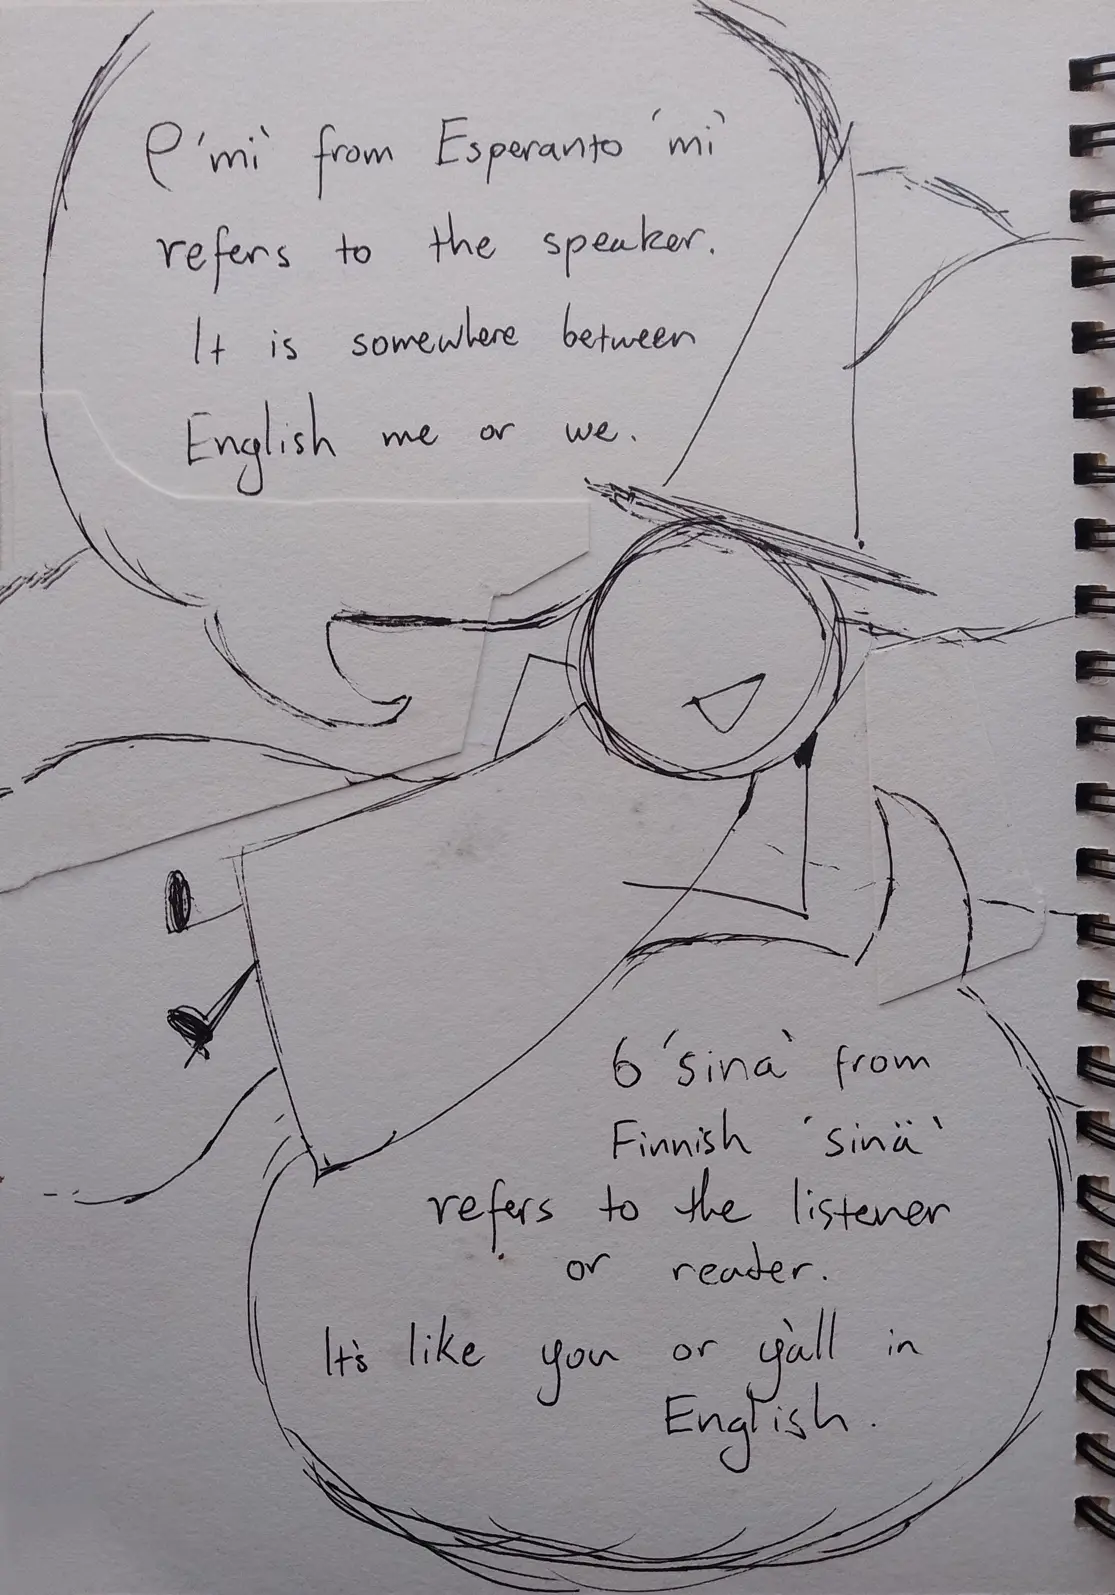 ƿ 'mi' from Esperanto 'mi'
refers to the speaker.
It is somewhere between
English me or we.
6 'sina' from
Finnish 'sinä'
refers to the listener
or reader.
It's like you or y'all in
English.